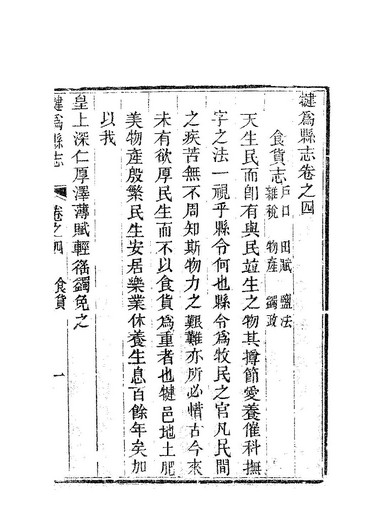 犍爲縣志卷之四
食貨志 戶口 田賦 鹽法
雜稅 物產 蠲政
天生民而卽有與民並生之物其撙節愛養催科撫
字之法一視乎縣令何也縣令爲牧民之官凡民間
之疾苦無不周知斯物力之艱難亦所必惜古今來
未有欲厚民生而不以食貨爲重者也犍邑地土肥
美物產殷繁民生安居樂業休養生息百餘年矣加
以我
皇上深仁厚澤薄賦輕徭蠲免之
犍爲縣志 卷之四 食貨 一